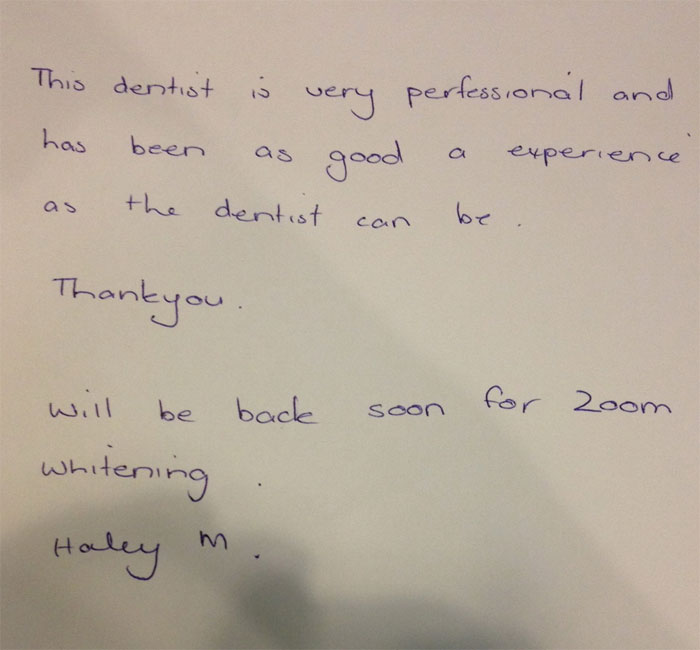 This dentist is very perfessional and
has been as good a experience
as the dentist can be .
Thankyou .
will be back soon for Zoom
whitening .
Haley M .